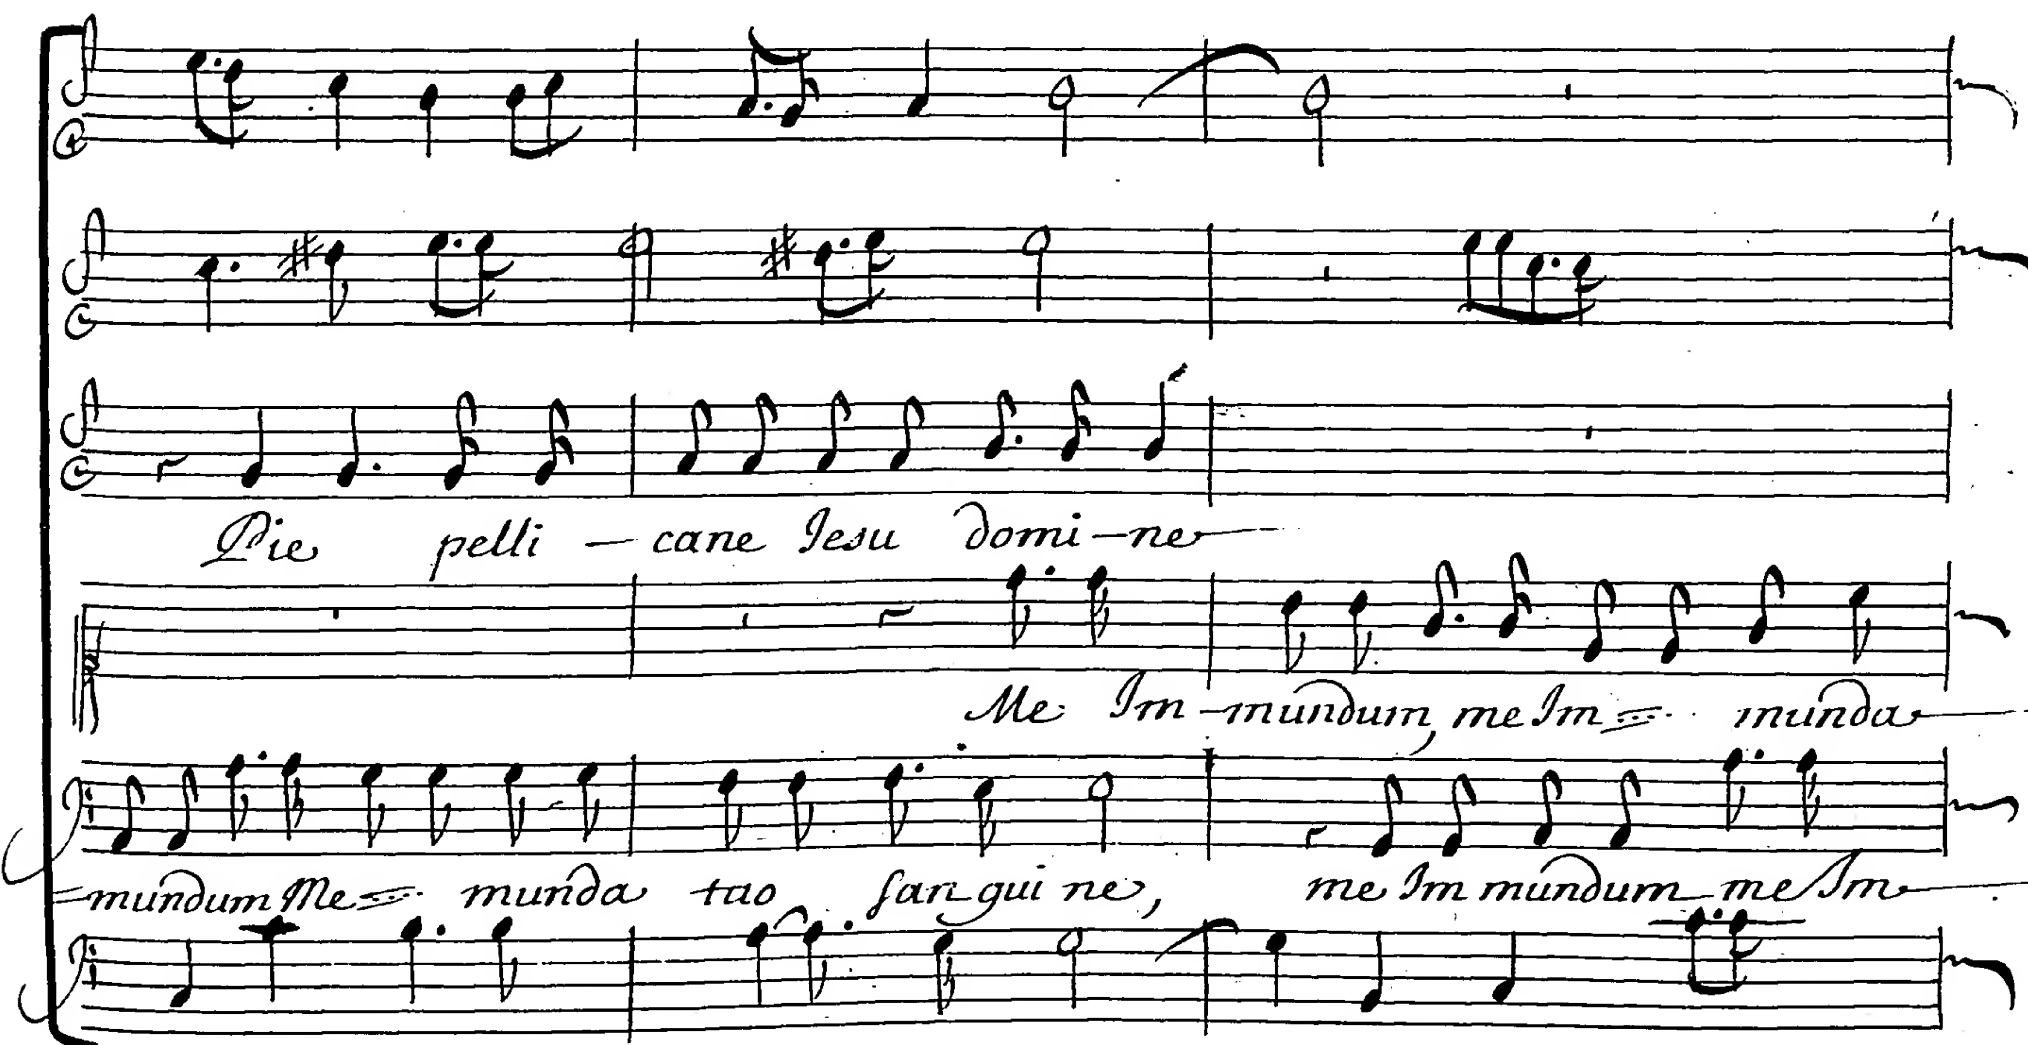 Pie pelli - cane Iesu domi - ne
Me Im - mundum, me Im = munda
= mundum Me = munda tuo sanguine, me Im mundum me Im